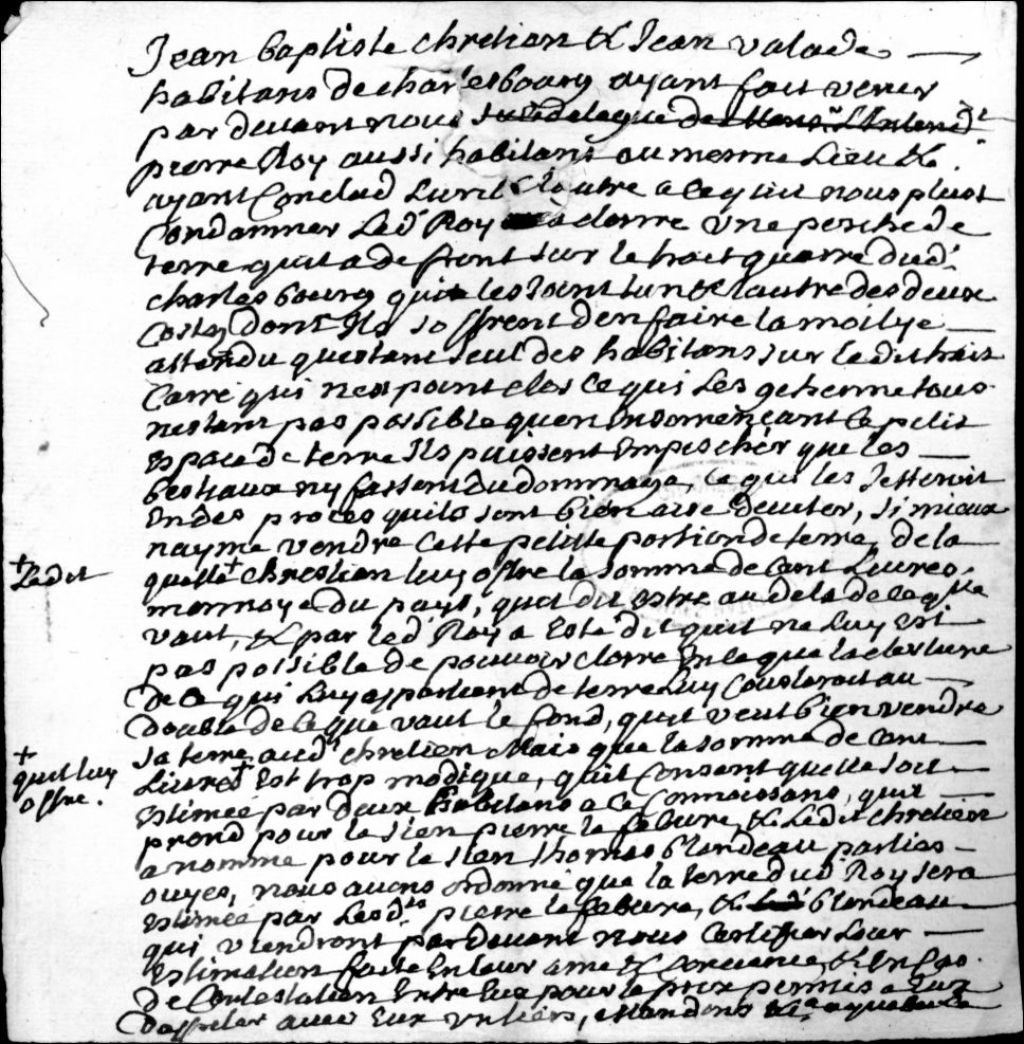 Jean baptiste chretien & Jean valade
habitans de charlesbourg ayant fait venir
par devant nous subdelegué de Monsr. L'Intendt
pierre Roy aussi habitant au mesme Lieu &
ayant Conclud L'un & l'autre a ce qu'il nous plust
Condamner Led. Roy a clorre une perche de
terre qu'il a de front sur le trait quarré dud.
charlesbourg qui les joint l'un & l'autre des deux
Costez dont Ils s'offrent d'en faire la moitye
attendu questant seul des habitans sur ledit trait
Carré qui n'est point clos ce qui Les gehenne tous
nestant pas possible qu'en ensemençant ce petit
espace de terre Ils puissent Empescher que les
bestiaux ny fassent du dommage, ce qui les Jetteroit
En des proces quils sont bien aise d'eviter, si mieux
nayme vendre cette petitte portion de terre, de la
+ Ledit
quelle + chrestien luy offre la somme de Cent Livres
monnoye du pays, qu'il dit estre au dela de ce qu'elle
vaut, & par led. Roy a Esté dit quil ne Luy Est
pas possible de pouvoir clorre En ce que la closture
de ce qui Luy appartient de terre Luy Cousteroit au
double de ce que vaut le fond, quil veut bien vendre
sa terre aud. chretien Mais que la somme de Cent
+ quil luy offre.
Livres + Est trop modique, quil Consent quelle soit
estimée par deux habitans a ce Connoissans, quil
prend pour le sien pierre le febvre, & Ledit chretien
a nommé pour le sien thomas blondeau parties
ouyes, nous avons ordonné que la terre dud. Roy sera
estimée par Lesdts pierre le febvre, & Led. blondeau
qui viendront par devant nous Certiffier Leur
Estimation faite En leur ame & conscience, & En Cas
de Contestation Entre Eux pour le prix permis a Eux
d'appeler avec Eux un tiers,